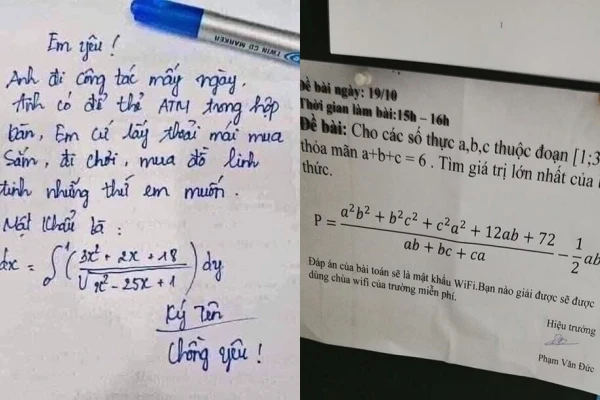 TWIN CD MARKER
Em yêu !
Anh đi công tác mấy ngày.
Anh có để thẻ ATM trong hộp
bàn, Em cứ lấy thoải mái mua
Sắm, đi chơi, mua đồ linh
tinh những thứ em muốn.
Mật khẩu là :
dx = ∫₀¹ (3x² + 2x + 18 / √(x² - 25x + 1)) dy
Ký tên
Chồng yêu !
1
Đề bài ngày: 19/10
Thời gian làm bài:15h – 16h
Đề bài: Cho các số thực a,b,c thuộc đoạn [1;3
thỏa mãn a+b+c = 6 . Tìm giá trị lớn nhất của
thức.
P = (a²b² + b²c² + c²a² + 12ab + 72) / (ab + bc + ca) − 1/2 ab
Đáp án của bài toán sẽ là mật khẩu WiFi.Bạn nào giải được sẽ được
dùng chùa wifi của trường miễn phí.
Hiệu trưởng
Phạm Văn Đức